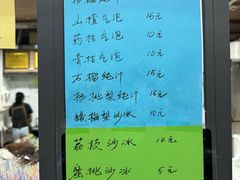 山楂气泡 15元
药桔气泡 10元
青桔气泡 10元
石榴纯汁 15元
杨桃梨纯汁 15元
梨沙冰 10元
荔枝沙冰 10元
蜜桃沙冰 5元